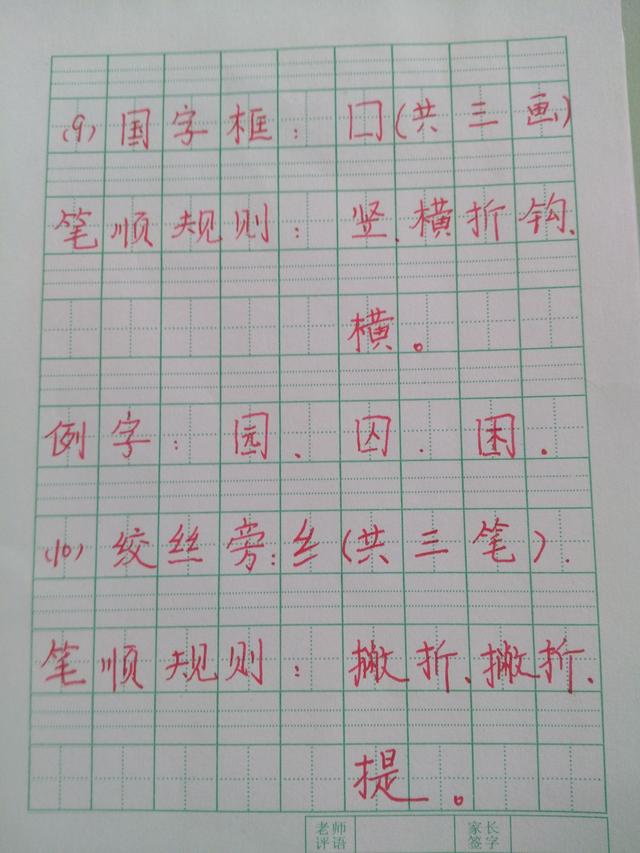 (9)国字框:囗(共三画)
笔顺规则:竖、横折钩、
横。
例字:园、囚、困.
(10)绞丝旁:纟(共三笔).
笔顺规则:撇折、撇折、
提。
老师评语 家长签字